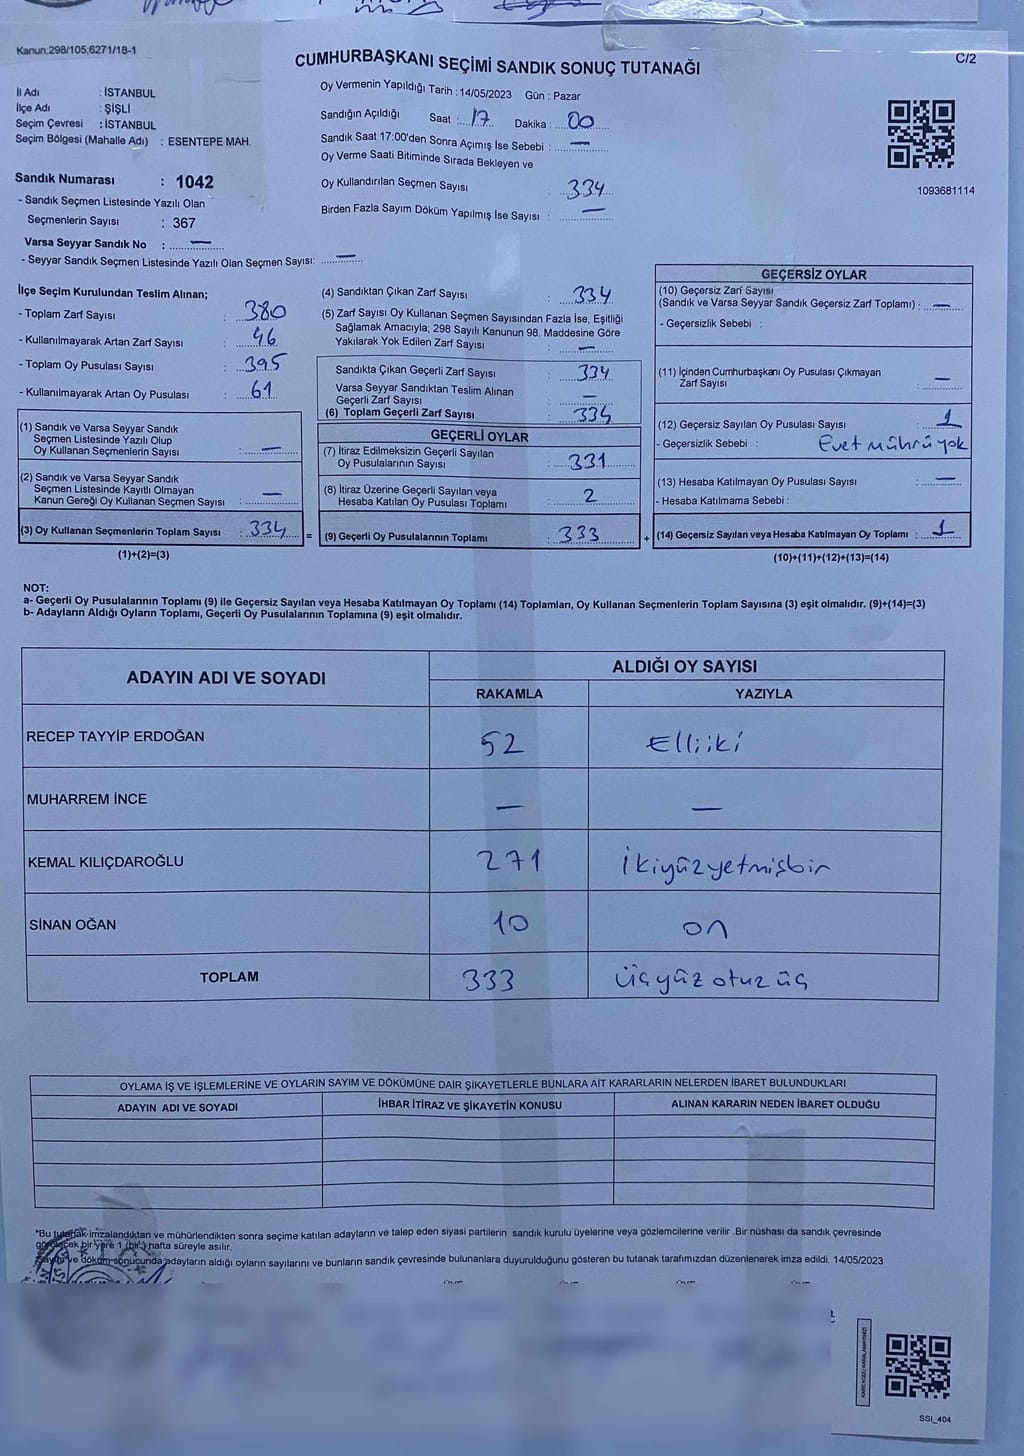 Kanun;298/105;6271/18-1
C/2
CUMHURBAŞKANI SEÇİMİ SANDIK SONUÇ TUTANAĞI
İl Adı : İSTANBUL
İlçe Adı : ŞİŞLİ
Seçim Çevresi : İSTANBUL
Seçim Bölgesi (Mahalle Adı) : ESENTEPE MAH.
Sandık Numarası : 1042
- Sandık Seçmen Listesinde Yazılı Olan
Seçmenlerin Sayısı : 367
Varsa Seyyar Sandık No : —
- Seyyar Sandık Seçmen Listesinde Yazılı Olan Seçmen Sayısı: —
Oy Vermenin Yapıldığı Tarih : 14/05/2023 Gün : Pazar
Sandığın Açıldığı Saat : 17 Dakika : 00
Sandık Saat 17:00'den Sonra Açımış İse Sebebi : —
Oy Verme Saati Bitiminde Sırada Bekleyen ve
Oy Kullandırılan Seçmen Sayısı : 334
Birden Fazla Sayım Döküm Yapılmış İse Sayısı : —
1093681114
İlçe Seçim Kurulundan Teslim Alınan;
- Toplam Zarf Sayısı : 380
- Kullanılmayarak Artan Zarf Sayısı : 46
- Toplam Oy Pusulası Sayısı : 395
- Kullanılmayarak Artan Oy Pusulası : 61
(1) Sandık ve Varsa Seyyar Sandık
Seçmen Listesinde Yazılı Olup
Oy Kullanan Seçmenlerin Sayısı : —
(2) Sandık ve Varsa Seyyar Sandık
Seçmen Listesinde Kayıtlı Olmayan
Kanun Gereği Oy Kullanan Seçmen Sayısı : —
(3) Oy Kullanan Seçmenlerin Toplam Sayısı : 334
(1)+(2)=(3)
(4) Sandıktan Çıkan Zarf Sayısı : 334
(5) Zarf Sayısı Oy Kullanan Seçmen Sayısından Fazla İse, Eşitliği
Sağlamak Amacıyla; 298 Sayılı Kanunun 98. Maddesine Göre
Yakılarak Yok Edilen Zarf Sayısı : —
Sandıkta Çıkan Geçerli Zarf Sayısı : 334
Varsa Seyyar Sandıktan Teslim Alınan
Geçerli Zarf Sayısı : —
(6) Toplam Geçerli Zarf Sayısı : 334
GEÇERLİ OYLAR
(7) İtiraz Edilmeksizin Geçerli Sayılan
Oy Pusulalarının Sayısı : 331
(8) İtiraz Üzerine Geçerli Sayılan veya
Hesaba Katılan Oy Pusulası Toplamı : 2
= (9) Geçerli Oy Pusulalarının Toplamı : 333
GEÇERSİZ OYLAR
(10) Geçersiz Zarf Sayısı
(Sandık ve Varsa Seyyar Sandık Geçersiz Zarf Toplamı) : —
- Geçersizlik Sebebi :
(11) İçinden Cumhurbaşkanı Oy Pusulası Çıkmayan
Zarf Sayısı : —
(12) Geçersiz Sayılan Oy Pusulası Sayısı : 1
- Geçersizlik Sebebi : Evet mührü yok
(13) Hesaba Katılmayan Oy Pusulası Sayısı : —
- Hesaba Katılmama Sebebi :
+ (14) Geçersiz Sayılan veya Hesaba Katılmayan Oy Toplamı : 1
(10)+(11)+(12)+(13)=(14)
NOT:
a- Geçerli Oy Pusulalarının Toplamı (9) ile Geçersiz Sayılan veya Hesaba Katılmayan Oy Toplamı (14) Toplamları, Oy Kullanan Seçmenlerin Toplam Sayısına (3) eşit olmalıdır. (9)+(14)=(3)
b- Adayların Aldığı Oyların Toplamı, Geçerli Oy Pusulalarının Toplamına (9) eşit olmalıdır.
ADAYIN ADI VE SOYADI ALDIĞI OY SAYISI
RAKAMLA YAZIYLA
RECEP TAYYİP ERDOĞAN 52 Elliiki
MUHARREM İNCE — —
KEMAL KILIÇDAROĞLU 271 İkiyüzyetmişbir
SİNAN OĞAN 10 on
TOPLAM 333 üçyüz otuz üç
OYLAMA İŞ VE İŞLEMLERİNE VE OYLARIN SAYIM VE DÖKÜMÜNE DAİR ŞİKAYETLERLE BUNLARA AİT KARARLARIN NELERDEN İBARET BULUNDUKLARI
ADAYIN ADI VE SOYADI İHBAR İTİRAZ VE ŞİKAYETİN KONUSU ALINAN KARARIN NEDEN İBARET OLDUĞU
*Bu tutanak imzalandıktan ve mühürlendikten sonra seçime katılan adayların ve talep eden siyasi partilerin sandık kurulu üyelerine veya gözlemcilerine verilir .Bir nüshası da sandık çevresinde
görülecek bir yere 1 (bir ) hafta süreyle asılır.
ve döküm sonucunda adayların aldığı oyların sayılarını ve bunların sandık çevresinde bulunanlara duyurulduğunu gösteren bu tutanak tarafımızdan düzenlenerek imza edildi. 14/05/2023
SSI_404